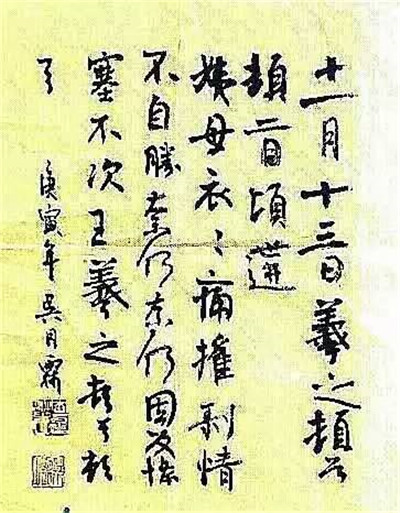 十一月十三日羲之頓首
頓首頃遘
姨母哀〻痛摧剝情
不自勝奈何奈何因反慘
塞不次王羲之頓首頓
首 庚寅年吳月